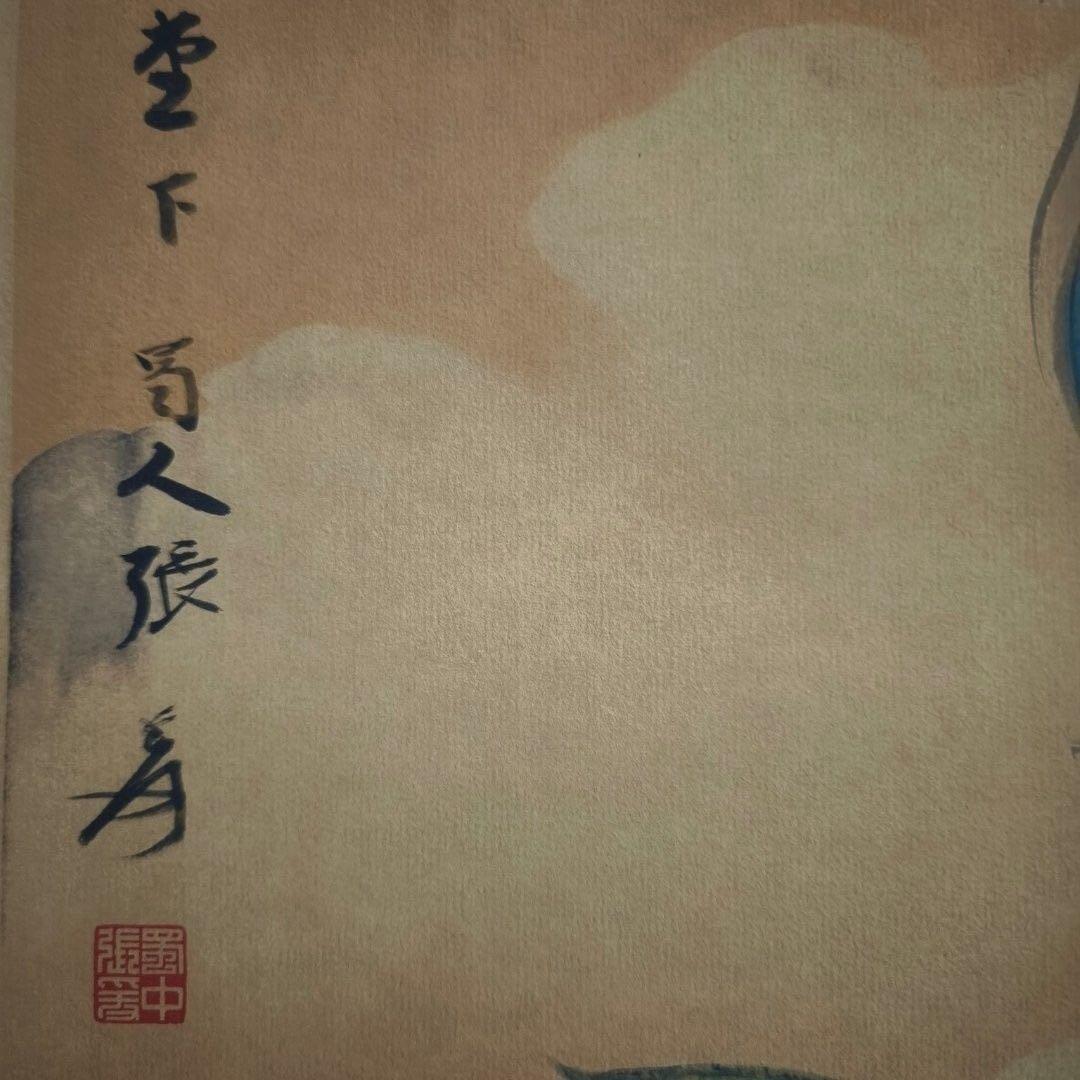 堂下 蜀人張爰
蜀中張爰